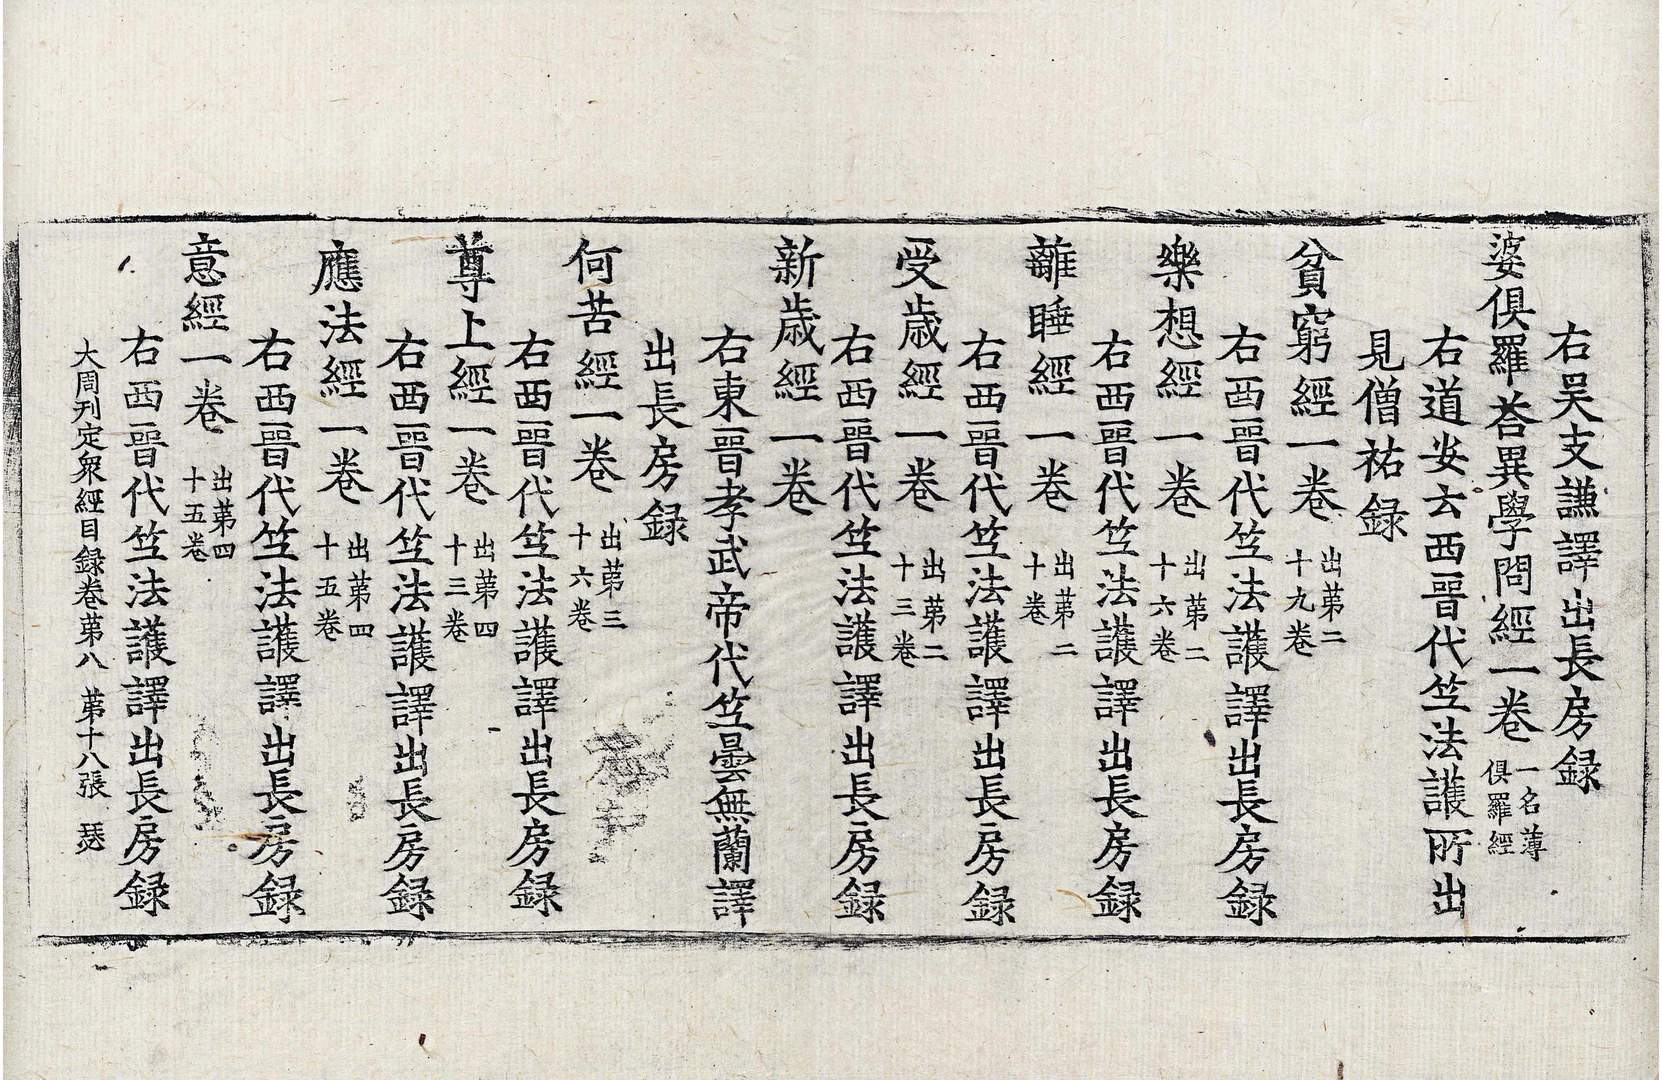 右吳支謙譯出長房録
婆俱羅荅異學問經一卷 一名薄俱羅經
右道安云西晉代笁法護所出
見僧祐録
貧窮經一卷 出苐二十九卷
右西晉代笁法護譯出長房録
樂想經一卷 出苐二十六卷
右西晉代笁法護譯出長房録
離睡經一卷 出苐二十卷
右西晉代笁法護譯出長房録
受歳經一卷 出苐二十三卷
右西晉代笁法護譯出長房録
新歳經一卷
右東晉孝武帝代笁曇無蘭譯
出長房録
何苦經一卷 出苐三十六卷
右西晉代笁法護譯出長房録
尊上經一卷 出苐四十三卷
右西晉代笁法護譯出長房録
應法經一卷 出苐四十五卷
右西晉代笁法護譯出長房録
意經一卷 出苐四十五卷
右西晉代笁法護譯出長房録
大周刊定衆經目録卷苐八 苐十八張 瑟